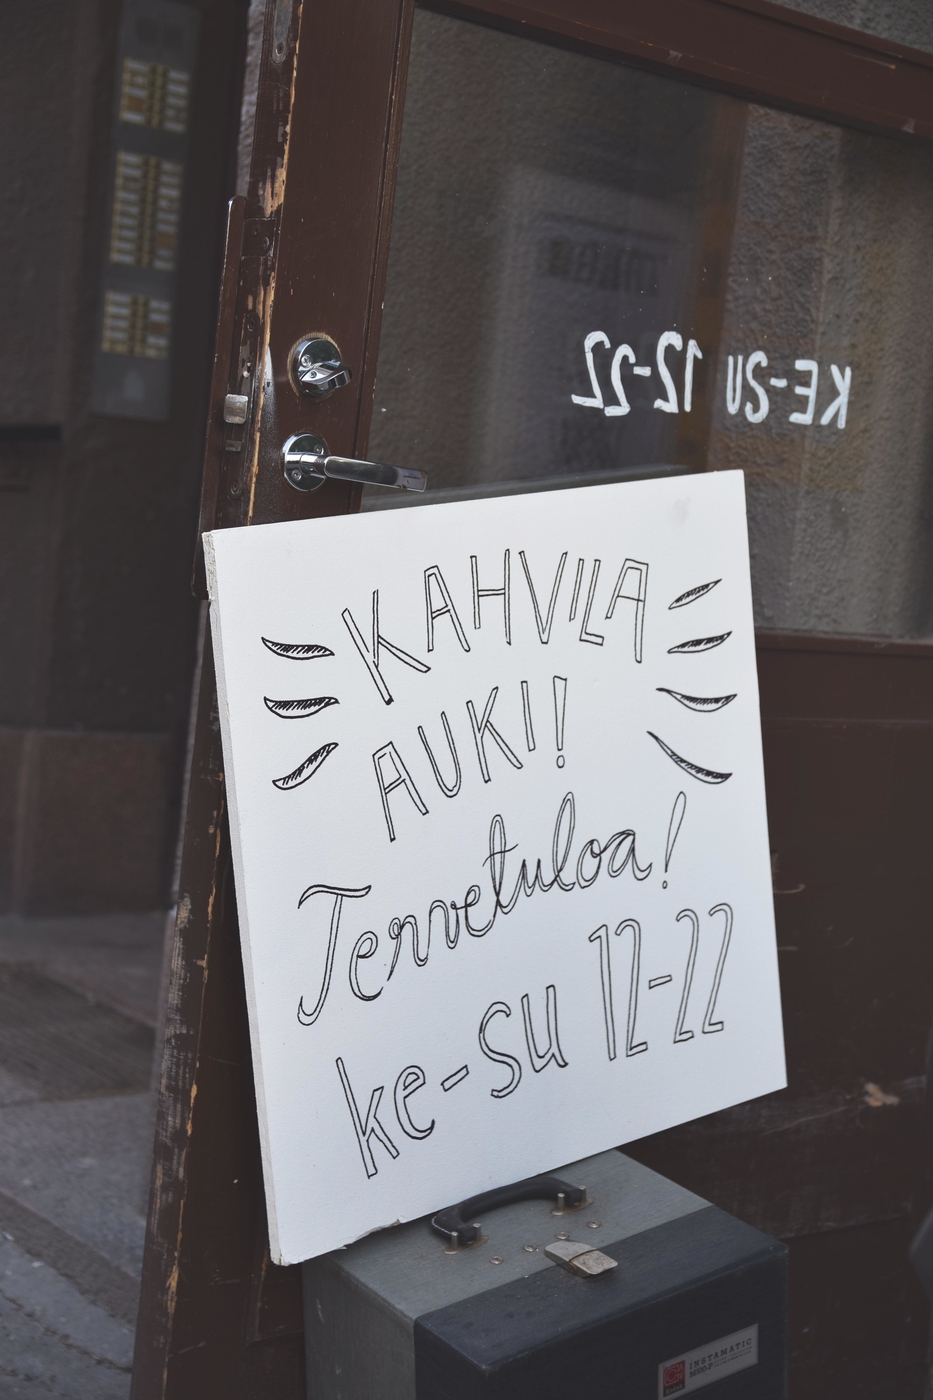 KE-SU 12-22
KAHVILA
AUKI!!
Tervetuloa!
ke-su 12-22
INSTAMATIC